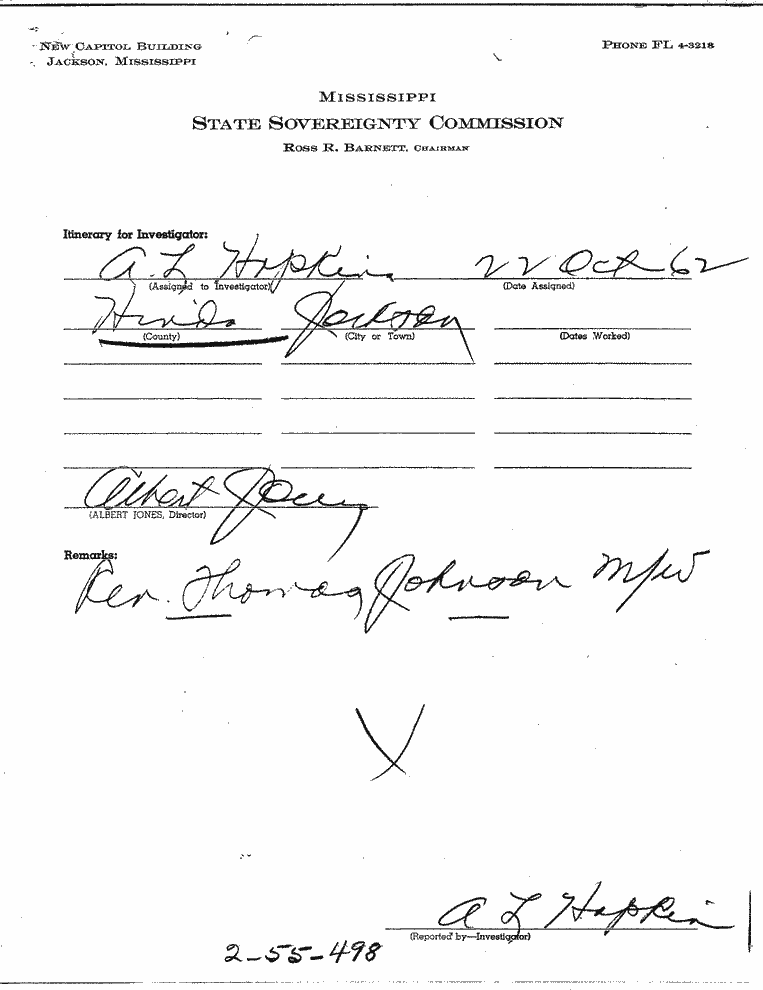 NEW CAPITOL BUILDING
JACKSON, MISSISSIPPI
PHONE FL 4-3218
MISSISSIPPI
STATE SOVEREIGNTY COMMISSION
ROSS R. BARNETT, CHAIRMAN
Itinerary for Investigator:
A. L Hopkins 22 Oct 62
(Assigned to Investigator) (Date Assigned)
Hinds Jackson
(County) (City or Town) (Dates Worked)
Albert Jones
(ALBERT JONES, Director)
Remarks:
Rev. Thomas Johnson M/W
A L Hopkins
(Reported by—Investigator)
2-55-498